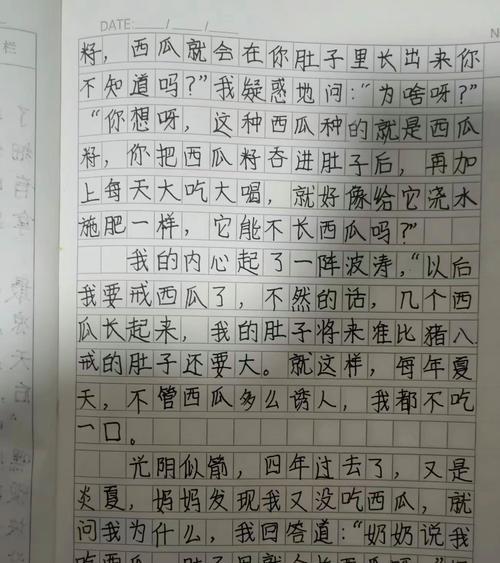 DATE: / /
NO
栏
籽，西瓜就会在你肚子里长出来你
不知道吗？”我疑惑地问：“为啥呀？”
“你想呀，这种西瓜种的就是西瓜
籽，你把西瓜籽吞进肚子后，再加
上每天大吃大喝，就好像给它浇水
施肥一样，它能不长西瓜吗？”
我的内心起了一阵波涛，“以后
我要戒西瓜了，不然的话，几个西
瓜长起来，我的肚子将来准比猪八
戒的肚子还要大。就这样，每年夏
天，不管西瓜多么诱人，我都不吃
一口。
光阴似箭，四年过去了，又是
炎夏，妈妈发现我又没吃西瓜，就
问我为什么，我回答道：“奶奶说我
吃西瓜，肚子里就会长西瓜